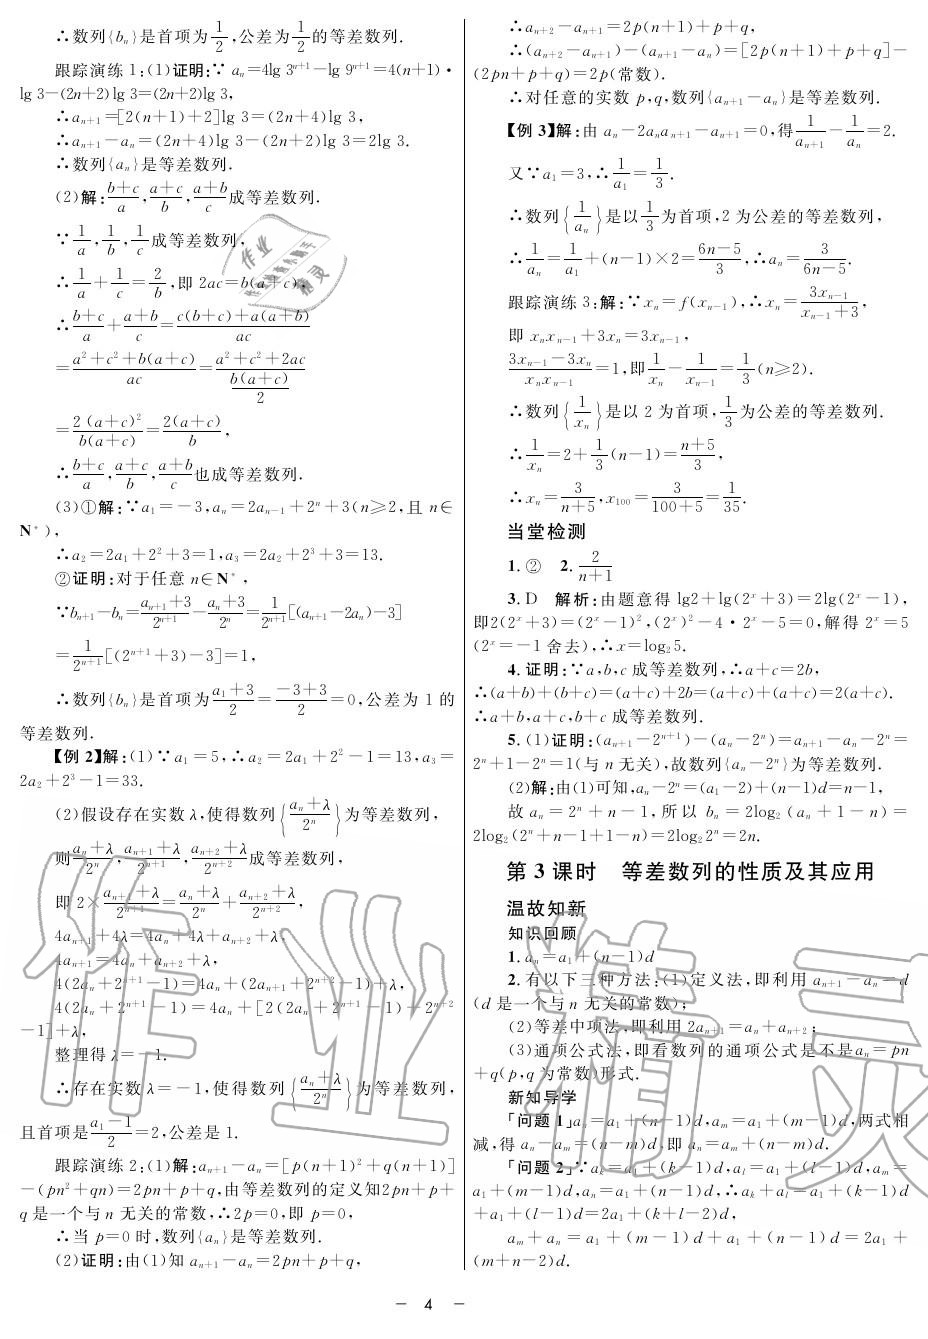 ∴数列{bₙ}是首项为1/2,公差为1/2的等差数列.
跟踪演练 1:(1)证明:∵ aₙ=4lg 3ⁿ⁺¹-lg 9ⁿ⁺¹=4(n+1)·
lg 3-(2n+2)lg 3=(2n+2)lg 3,
∴aₙ₊₁=[2(n+1)+2]lg 3=(2n+4)lg 3,
∴aₙ₊₁-aₙ=(2n+4)lg 3-(2n+2)lg 3=2lg 3.
∴数列{aₙ}是等差数列.
(2)解:(b+c)/a,(a+c)/b,(a+b)/c成等差数列.
∵1/a,1/b,1/c成等差数列,
∴1/a+1/c=2/b,即 2ac=b(a+c),
∴(b+c)/a+(a+b)/c=(c(b+c)+a(a+b))/(ac)
=(a²+c²+b(a+c))/(ac)=(a²+c²+2ac)/((b(a+c))/2)
=(2(a+c)²)/(b(a+c))=(2(a+c))/b,
∴(b+c)/a,(a+c)/b,(a+b)/c也成等差数列.
(3)①解:∵a₁=-3,aₙ=2aₙ₋₁+2ⁿ+3(n≥2,且 n∈
N*),
∴a₂=2a₁+2²+3=1,a₃=2a₂+2³+3=13.
②证明:对于任意 n∈N*,
∵bₙ₊₁-bₙ=(aₙ₊₁+3)/2ⁿ⁺¹-(aₙ+3)/2ⁿ=1/2ⁿ⁺¹[(aₙ₊₁-2aₙ)-3]
=1/2ⁿ⁺¹[(2ⁿ⁺¹+3)-3]=1,
∴数列{bₙ}是首项为(a₁+3)/2=(-3+3)/2=0,公差为 1 的
等差数列.
【例 2】解:(1)∵a₁=5,∴a₂=2a₁+2²-1=13,a₃=
2a₂+2³-1=33.
(2)假设存在实数 λ,使得数列{(aₙ+λ)/2ⁿ}为等差数列,
则(aₙ+λ)/2ⁿ,(aₙ₊₁+λ)/2ⁿ⁺¹,(aₙ₊₂+λ)/2ⁿ⁺²成等差数列,
即 2×(aₙ₊₁+λ)/2ⁿ⁺¹=(aₙ+λ)/2ⁿ+(aₙ₊₂+λ)/2ⁿ⁺²,
4aₙ₊₁+4λ=4aₙ+4λ+aₙ₊₂+λ,
4aₙ₊₁=4aₙ+aₙ₊₂+λ,
4(2aₙ+2ⁿ⁺¹-1)=4aₙ+(2aₙ₊₁+2ⁿ⁺²-1)+λ,
4(2aₙ+2ⁿ⁺¹-1)=4aₙ+[2(2aₙ+2ⁿ⁺¹-1)+2ⁿ⁺²
-1]+λ,
整理得 λ=-1.
∴存在实数 λ=-1,使得数列{(aₙ+λ)/2ⁿ}为等差数列,
且首项是(a₁-1)/2=2,公差是 1.
跟踪演练 2:(1)解:aₙ₊₁-aₙ=[p(n+1)²+q(n+1)]
-(pn²+qn)=2pn+p+q,由等差数列的定义知2pn+p+
q 是一个与 n 无关的常数,∴2p=0,即 p=0,
∴当 p=0 时,数列{aₙ}是等差数列.
(2)证明:由(1)知 aₙ₊₁-aₙ=2pn+p+q,
∴aₙ₊₂-aₙ₊₁=2p(n+1)+p+q,
∴(aₙ₊₂-aₙ₊₁)-(aₙ₊₁-aₙ)=[2p(n+1)+p+q]-
(2pn+p+q)=2p(常数).
∴对任意的实数 p,q,数列{aₙ₊₁-aₙ}是等差数列.
【例 3】解:由 aₙ-2aₙaₙ₊₁-aₙ₊₁=0,得1/aₙ₊₁-1/aₙ=2.
又∵a₁=3,∴1/a₁=1/3.
∴数列{1/aₙ}是以1/3为首项,2 为公差的等差数列,
∴1/aₙ=1/a₁+(n-1)×2=(6n-5)/3,∴aₙ=3/(6n-5).
跟踪演练 3:解:∵xₙ=f(xₙ₋₁),∴xₙ=3xₙ₋₁/(xₙ₋₁+3),
即 xₙxₙ₋₁+3xₙ=3xₙ₋₁,
(3xₙ₋₁-3xₙ)/(xₙxₙ₋₁)=1,即1/xₙ-1/xₙ₋₁=1/3(n≥2).
∴数列{1/xₙ}是以 2 为首项,1/3为公差的等差数列.
∴1/xₙ=2+1/3(n-1)=(n+5)/3,
∴xₙ=3/(n+5),x₁₀₀=3/(100+5)=1/35.
当堂检测
1.② 2.2/(n+1)
3.D 解析:由题意得 lg2+lg(2ˣ+3)=2lg(2ˣ-1),
即2(2ˣ+3)=(2ˣ-1)²,(2ˣ)²-4·2ˣ-5=0,解得 2ˣ=5
(2ˣ=-1 舍去),∴x=log₂5.
4.证明:∵a,b,c 成等差数列,∴a+c=2b,
∴(a+b)+(b+c)=(a+c)+2b=(a+c)+(a+c)=2(a+c).
∴a+b,a+c,b+c 成等差数列.
5.(1)证明:(aₙ₊₁-2ⁿ⁺¹)-(aₙ-2ⁿ)=aₙ₊₁-aₙ-2ⁿ=
2ⁿ+1-2ⁿ=1(与 n 无关),故数列{aₙ-2ⁿ}为等差数列.
(2)解:由(1)可知,aₙ-2ⁿ=(a₁-2)+(n-1)d=n-1,
故 aₙ=2ⁿ+n-1,所以 bₙ=2log₂(aₙ+1-n)=
2log₂(2ⁿ+n-1+1-n)=2log₂2ⁿ=2n.
第 3 课时 等差数列的性质及其应用
温故知新
知识回顾
1.aₙ=a₁+(n-1)d
2.有以下三种方法:(1)定义法,即利用 aₙ₊₁-aₙ=d
(d 是一个与 n 无关的常数);
(2)等差中项法,即利用 2aₙ₊₁=aₙ+aₙ₊₂;
(3)通项公式法,即看数列的通项公式是不是aₙ=pn
+q(p,q 为常数)形式.
新知导学
「问题 1」aₙ=a₁+(n-1)d,aₘ=a₁+(m-1)d,两式相
减,得 aₙ-aₘ=(n-m)d,即 aₙ=aₘ+(n-m)d.
「问题 2」∵aₖ=a₁+(k-1)d,aₗ=a₁+(l-1)d,aₘ=
a₁+(m-1)d,aₙ=a₁+(n-1)d,∴aₖ+aₗ=a₁+(k-1)d
+a₁+(l-1)d=2a₁+(k+l-2)d,
aₘ+aₙ=a₁+(m-1)d+a₁+(n-1)d=2a₁+
(m+n-2)d.
— 4 —
作业精灵